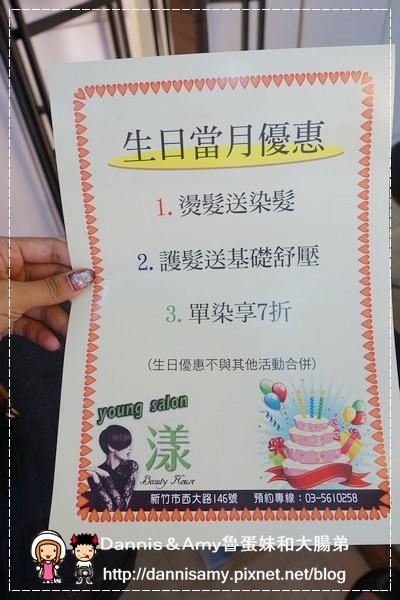 生日當月優惠
1. 燙髮送染髮
2. 護髮送基礎舒壓
3. 單染享7折
(生日優惠不與其他活動合併)
young salon
漾
Beauty House
新竹市西大路146號 預約專線：03-5610258
Dannis＆Amy魯蛋妹和大腸弟
http://dannisamy.pixnet.net/blog